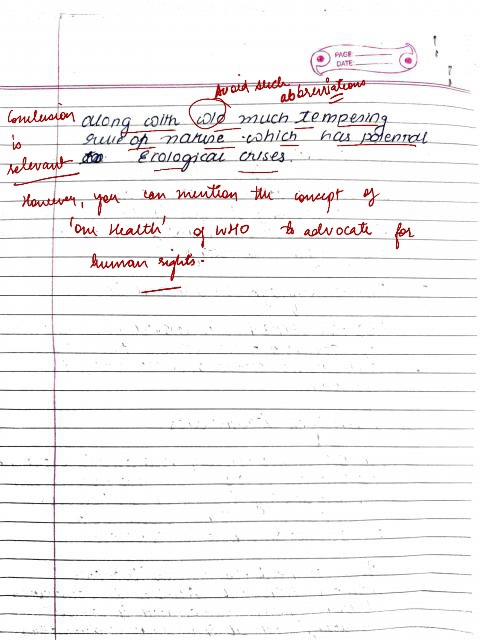 PAGE
DATE:
Avoid such
abbreviations
Conclusion
is
relevant
along with w/o much tempering
rule of nature which has potential
Ecological crises.
However, you can mention the concept of
'One Health' of WHO to advocate for
human rights.